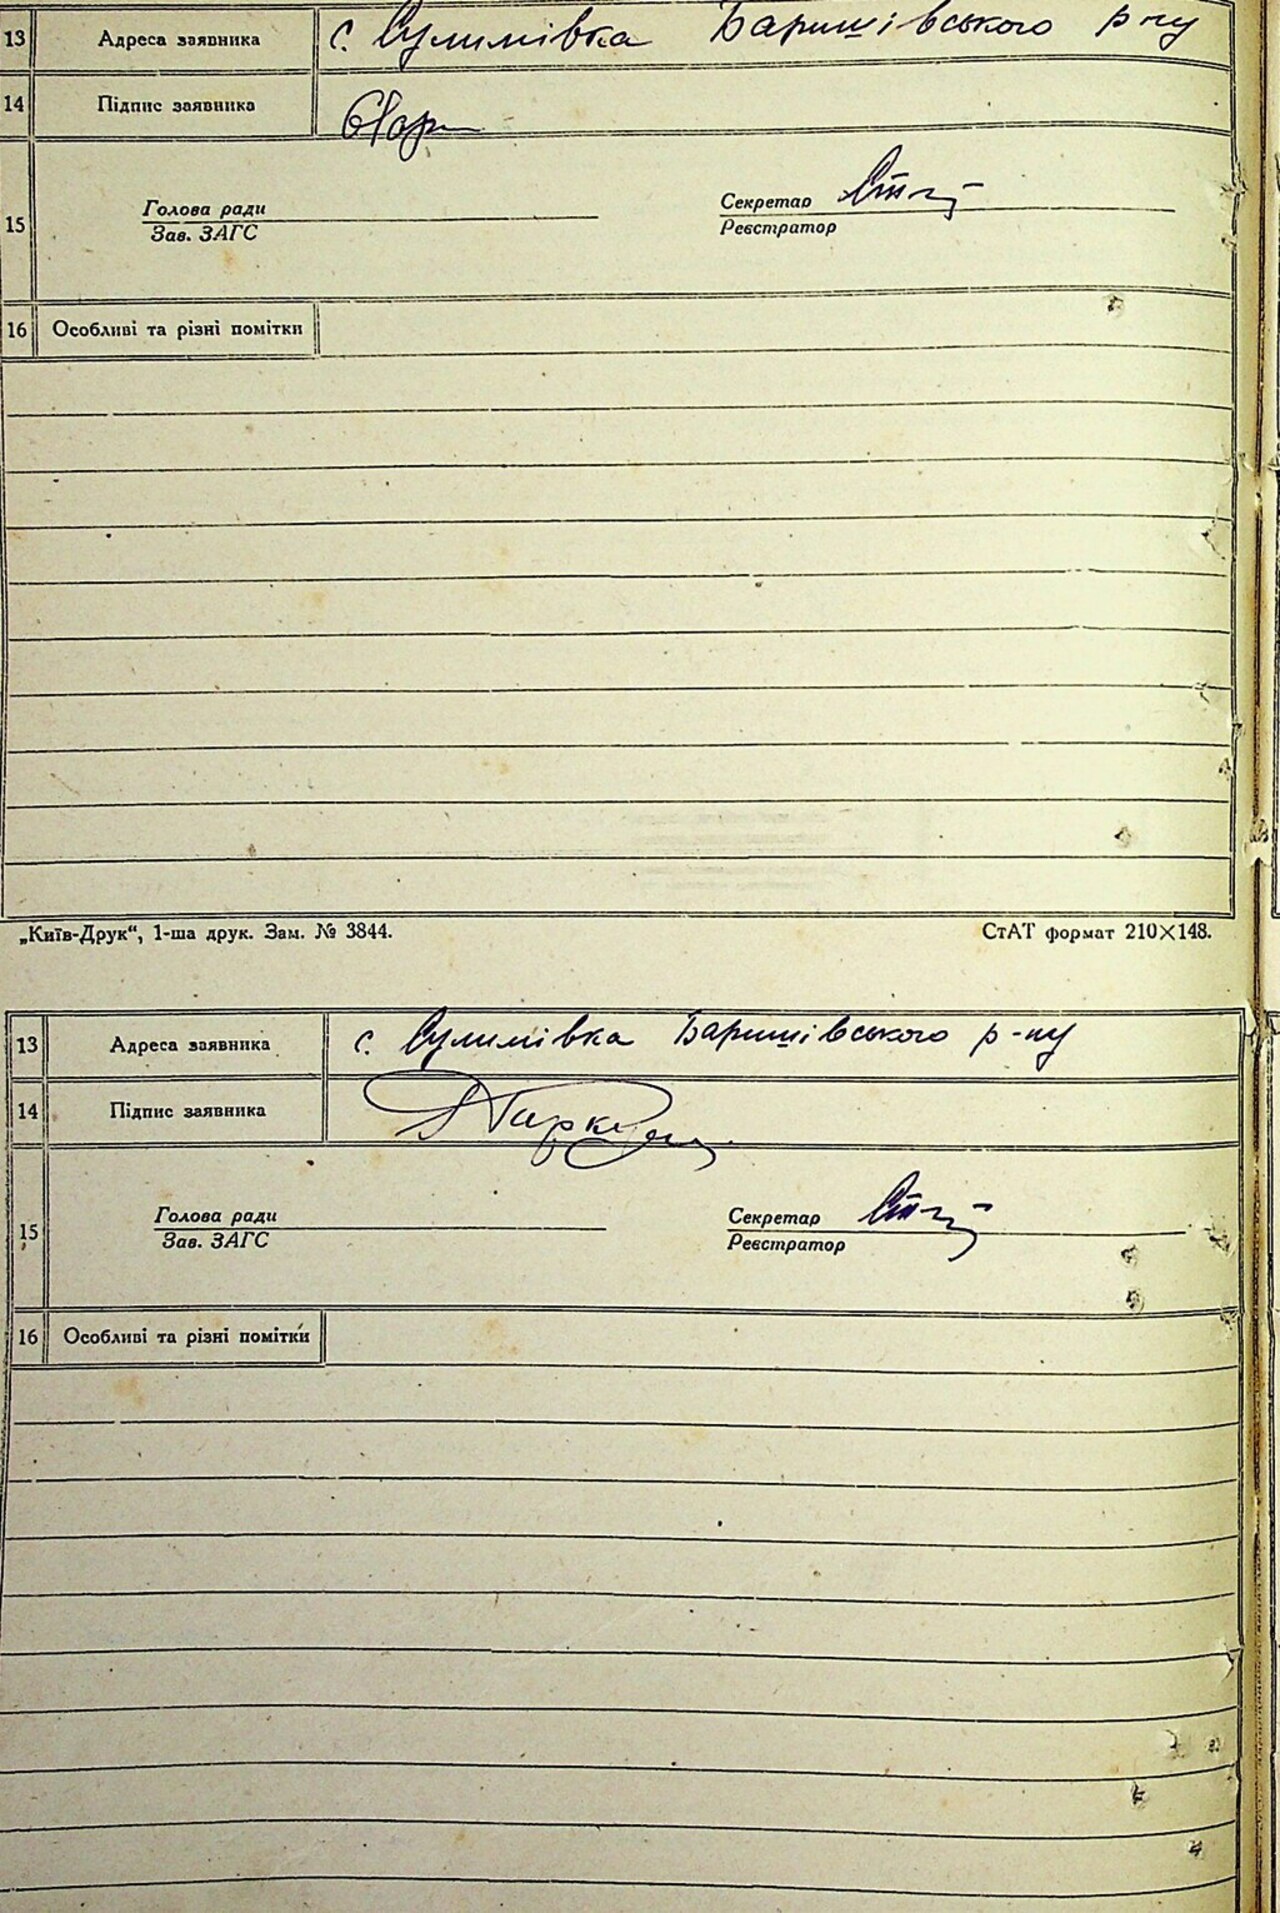 13 Адреса заявника с. Сулимівка Баришівського р-ну
14 Підпис заявника
Голова ради Секретар
15 Зав. ЗАГС Реєстратор
16 Особливі та різні помітки
„Київ-Друк“, 1-ша друк. Зам. № 3844. СтАТ формат 210×148.
13 Адреса заявника с. Сулимівка Баришівського р-ну
14 Підпис заявника
Голова ради Секретар
15 Зав. ЗАГС Реєстратор
16 Особливі та різні помітки